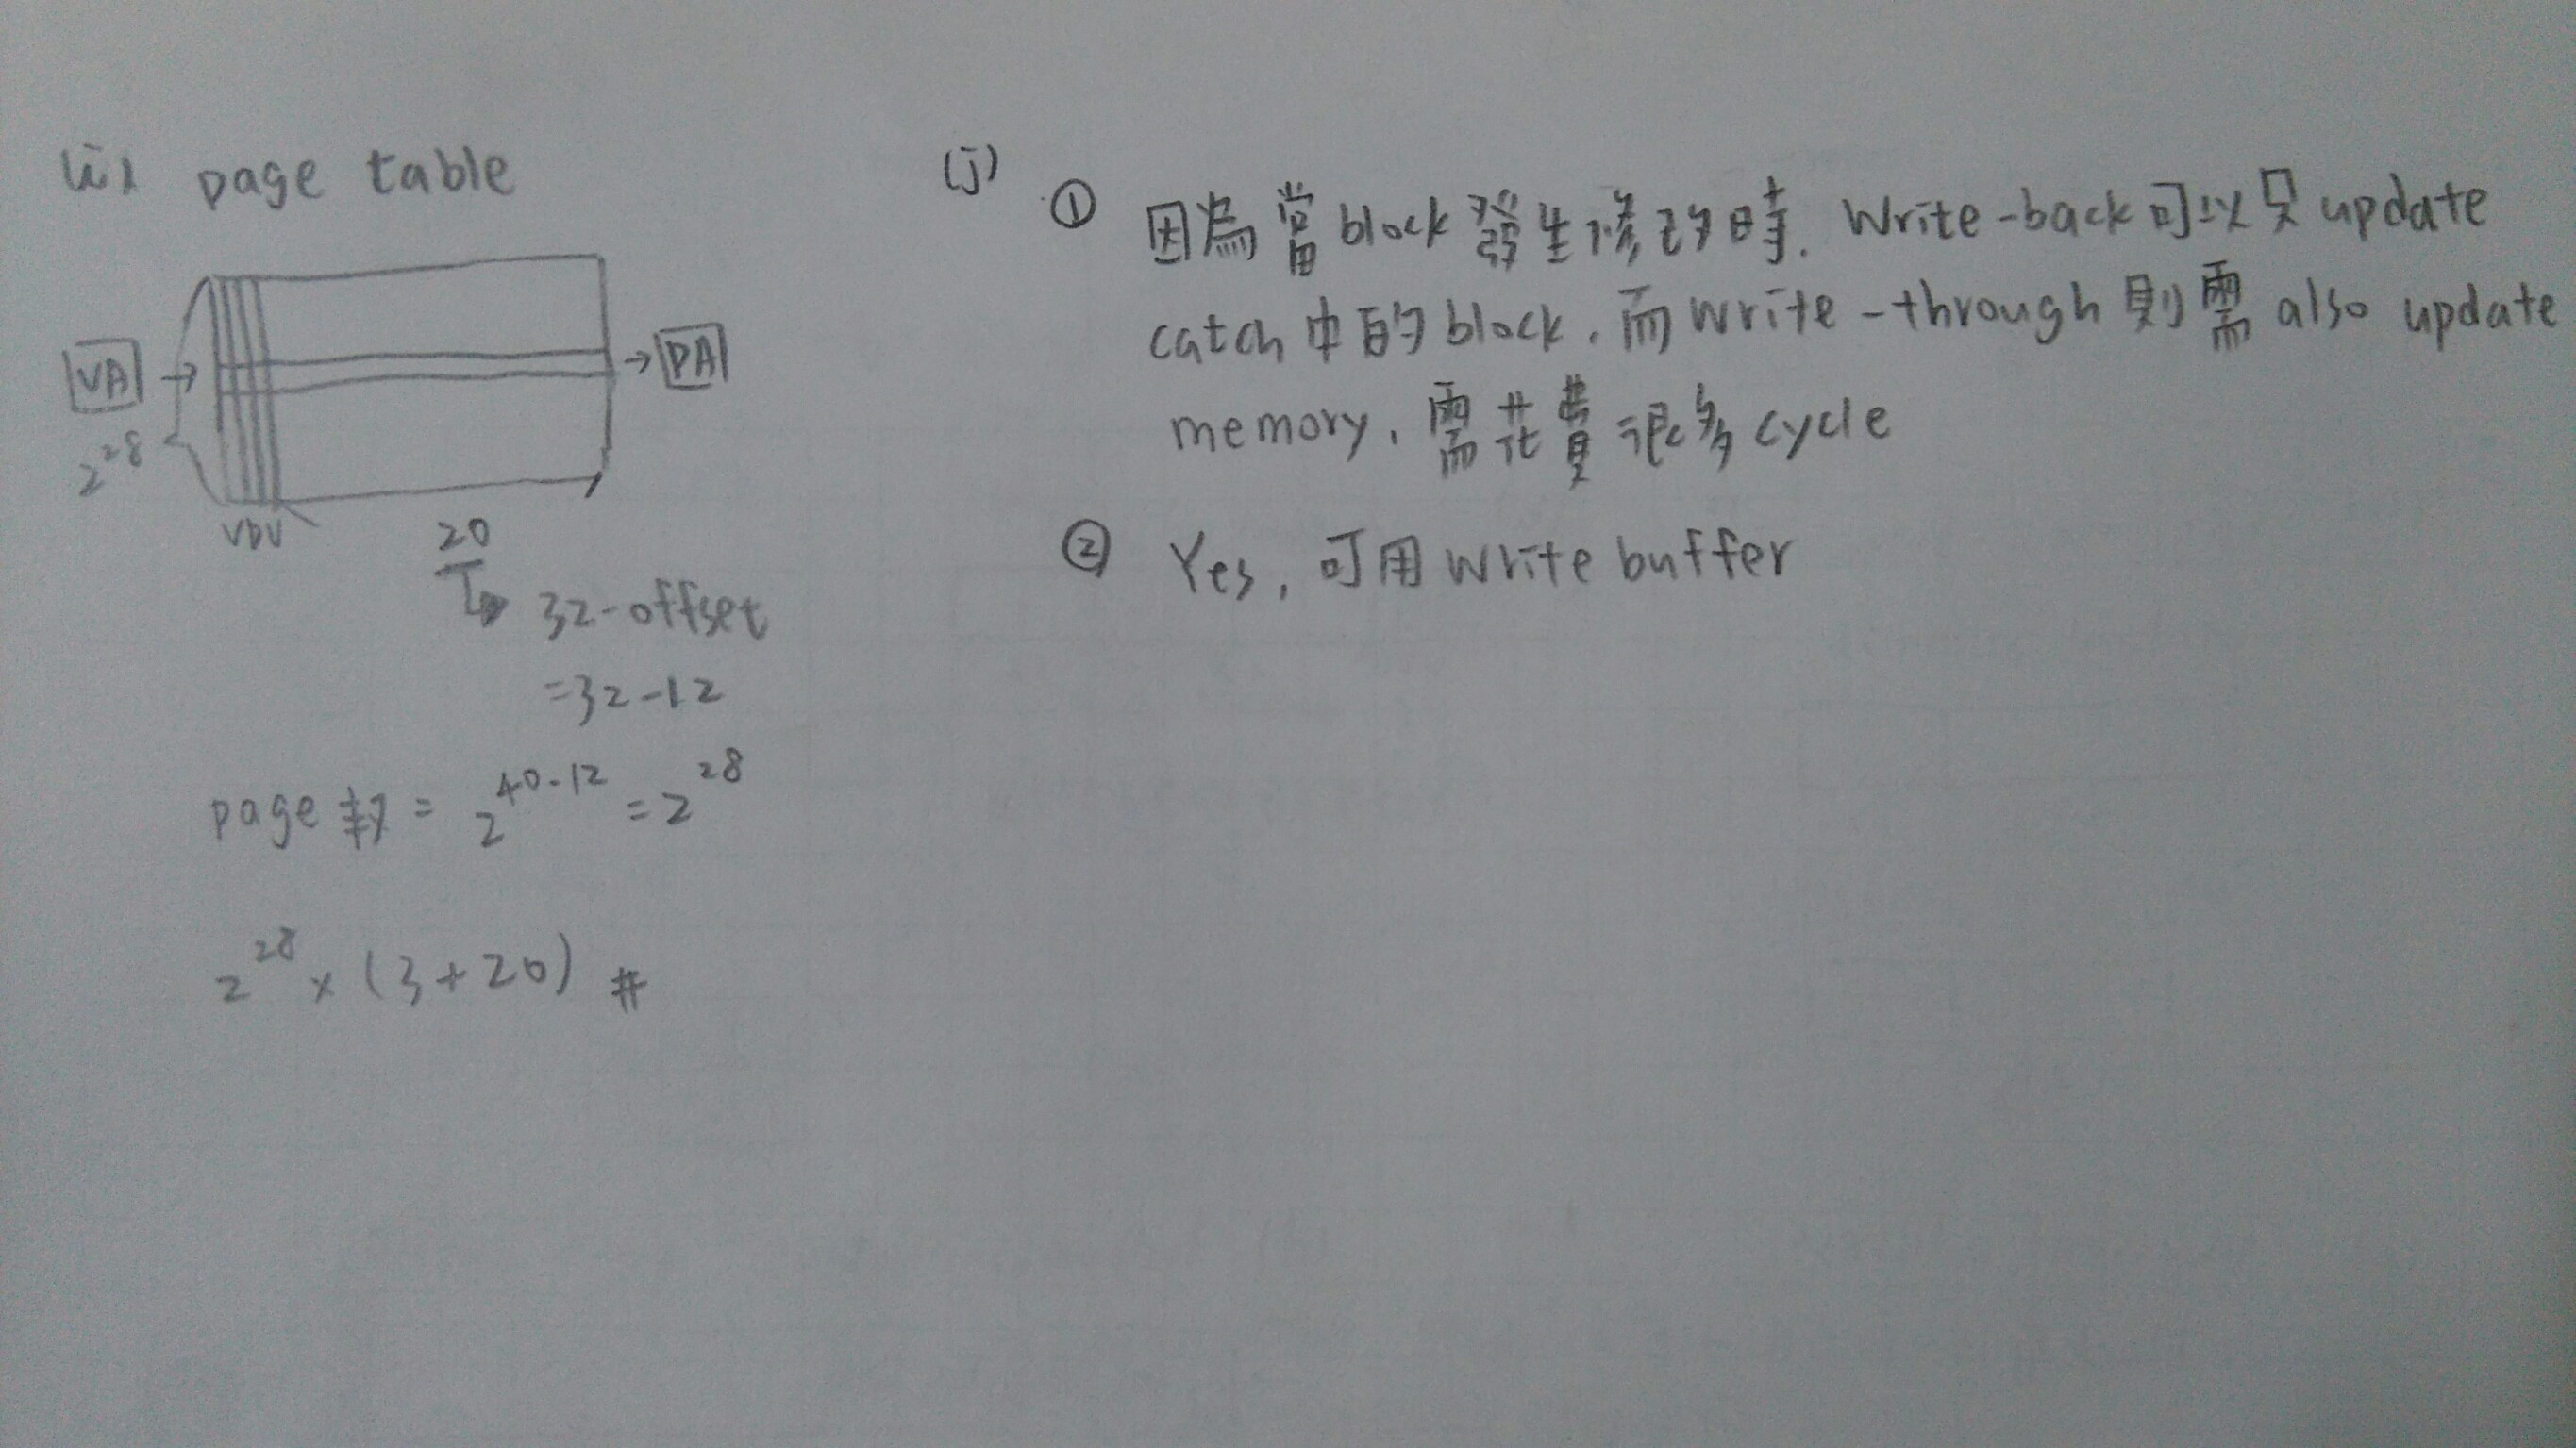 (i) page table
VA → → PA
2^28
VDU
20
↳ 32-offset
=32-12
page 数 = 2^40-12 = 2^28
2^28 x (3+20) #
(j)
① 因為當block發生修改時. Write-back可以只update
catch中的block,而write-through則需 also update
memory,需花費很多cycle
② Yes,可用write buffer